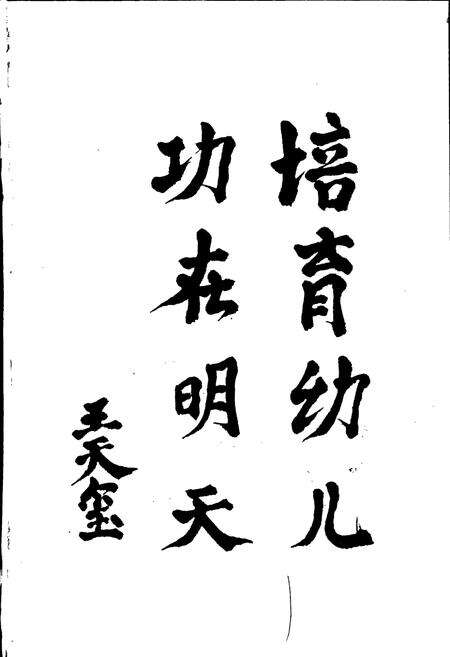 培育幼儿
功在明天
王天玺